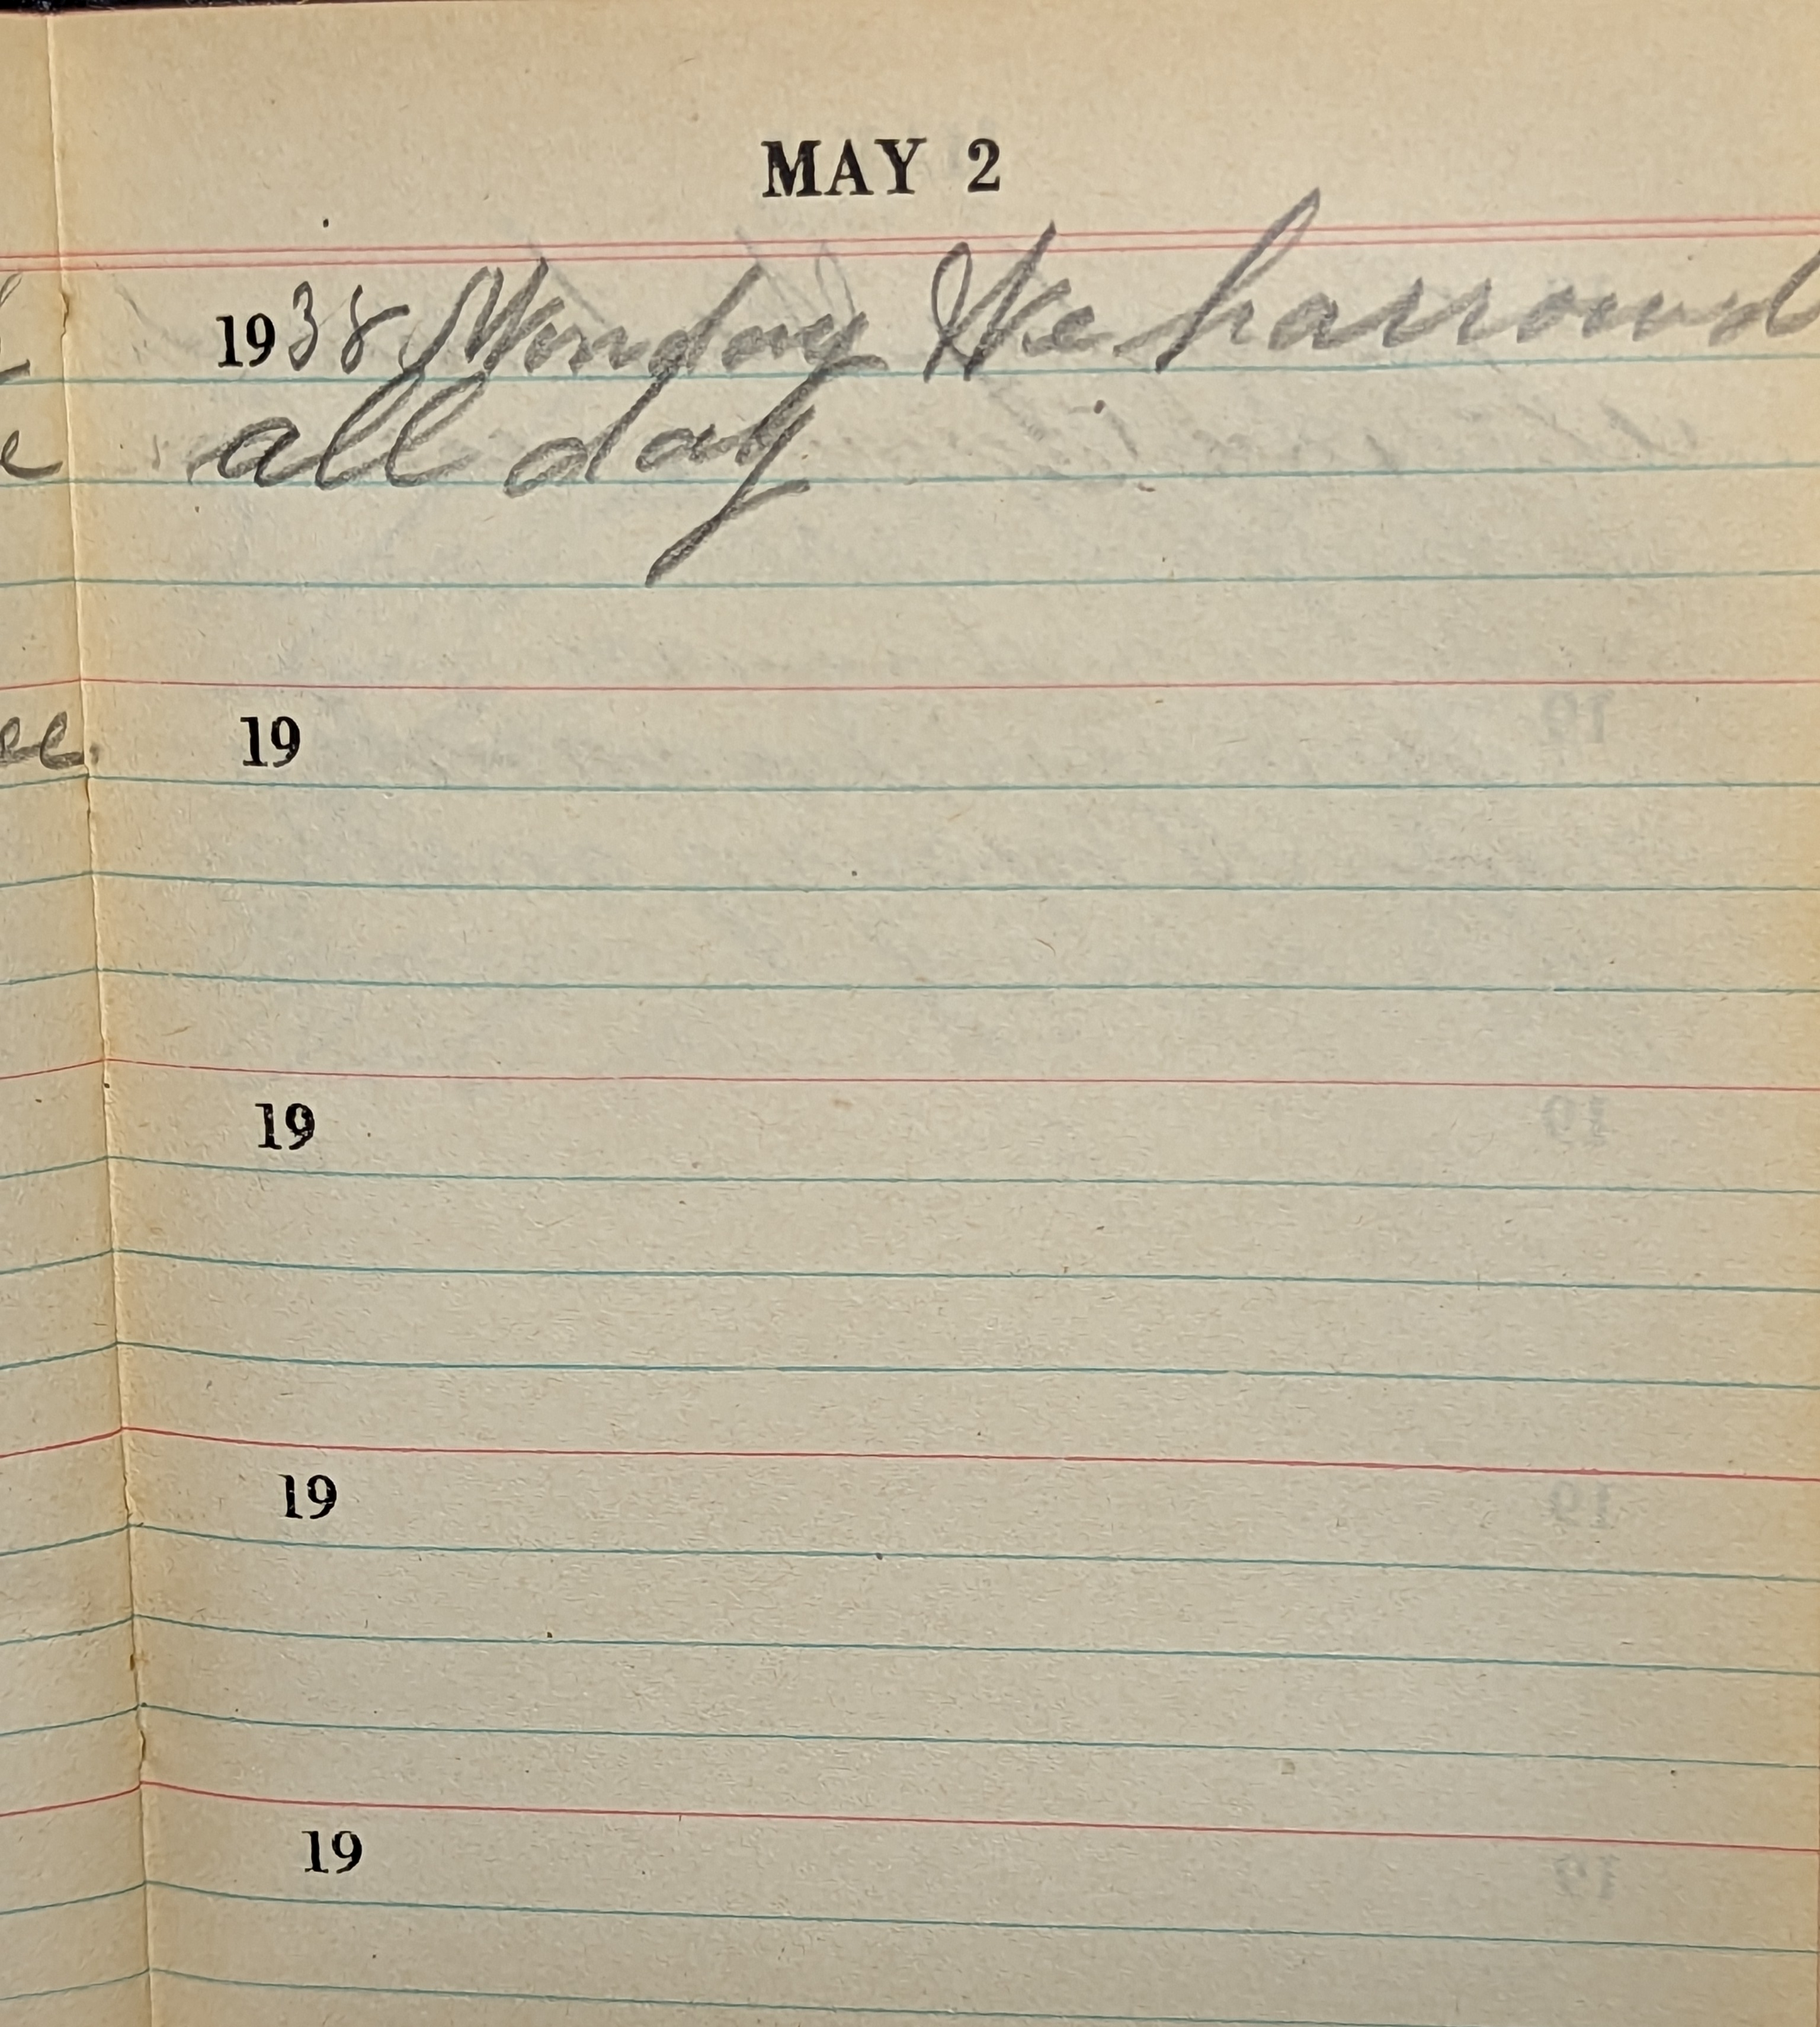 MAY 2
1938 Monday We harrowd
all day
19
19
19
19